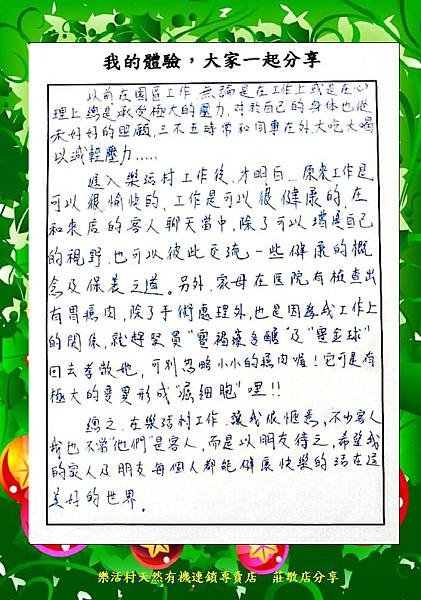 我的體驗，大家一起分享
以前在園區工作,無論是在工作上或是在心
理上總是承受極大的壓力,對於自己的身体也從
未好好的照顧,三不五時常和同事在外大吃大喝
以減輕壓力.....
進入樂活村工作後,才明白…原來工作是
可以很愉快的、工作是可以很健康的,在
和來店的客人聊天當中,除了可以增展自己
的視野,也可以彼此交流一些健康的概
念及保養之道。另外,家母在医院有檢查出
有胃瘜肉,除了手術處理外,也是因為我工作上
的關係,就趕緊買"靈芝多醣"及"靈金球"
回去孝敬她,可別忽略小小的瘜肉喔!它可是有
極大的變異形成"癌細胞"哩!!
總之,在樂活村工作,讓我很愜意,不少客人
我也不當"他們"是客人,而是以朋友待之,希望我
的家人及朋友每個人都能健康快樂的活在這
美好的世界。
樂活村天然有機連鎖專賣店 莊敬店分享